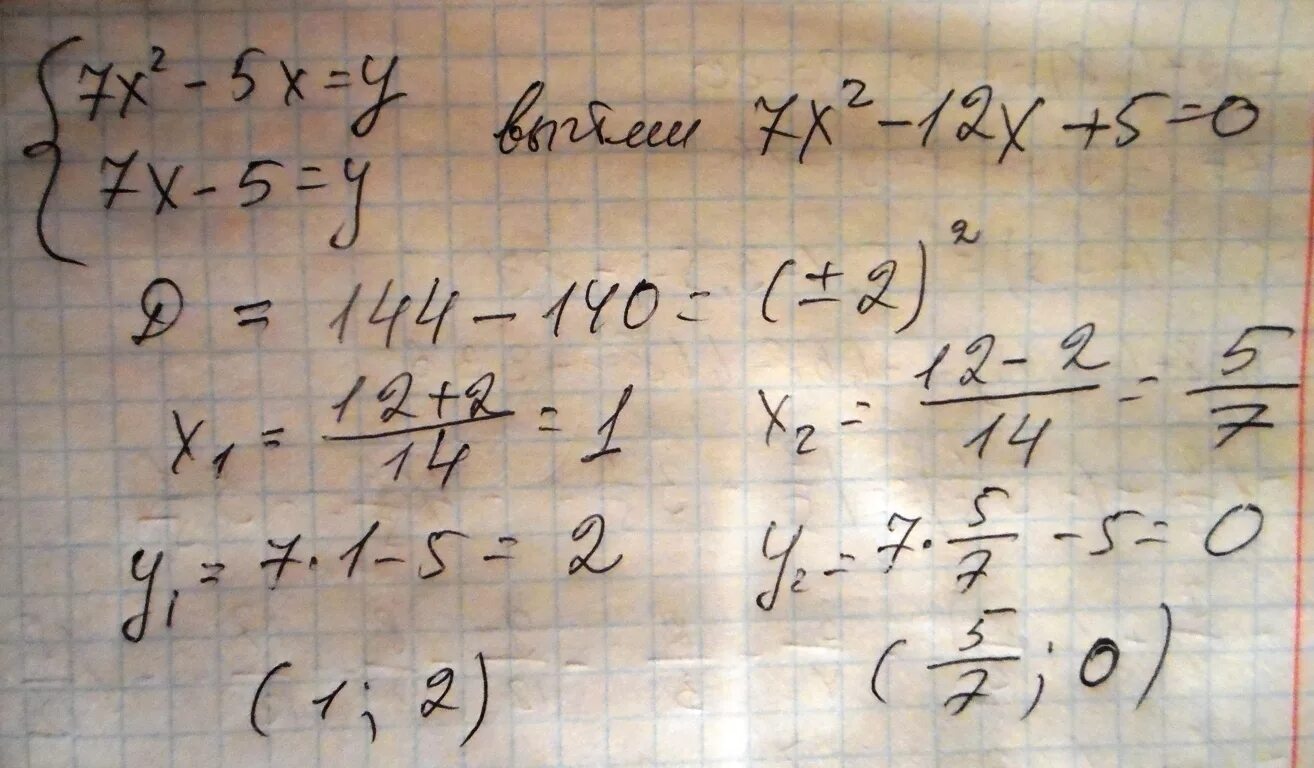 7x² - 5x = y
7x - 5 = y
вычтем 7x² - 12x + 5 = 0
D = 144 - 140 = (± 2)²
x₁ = (12+2)/14 = 1 x₂ = (12-2)/14 = 5/7
y₁ = 7·1 - 5 = 2 y₂ = 7·5/7 - 5 = 0
(1; 2) (5/7; 0)